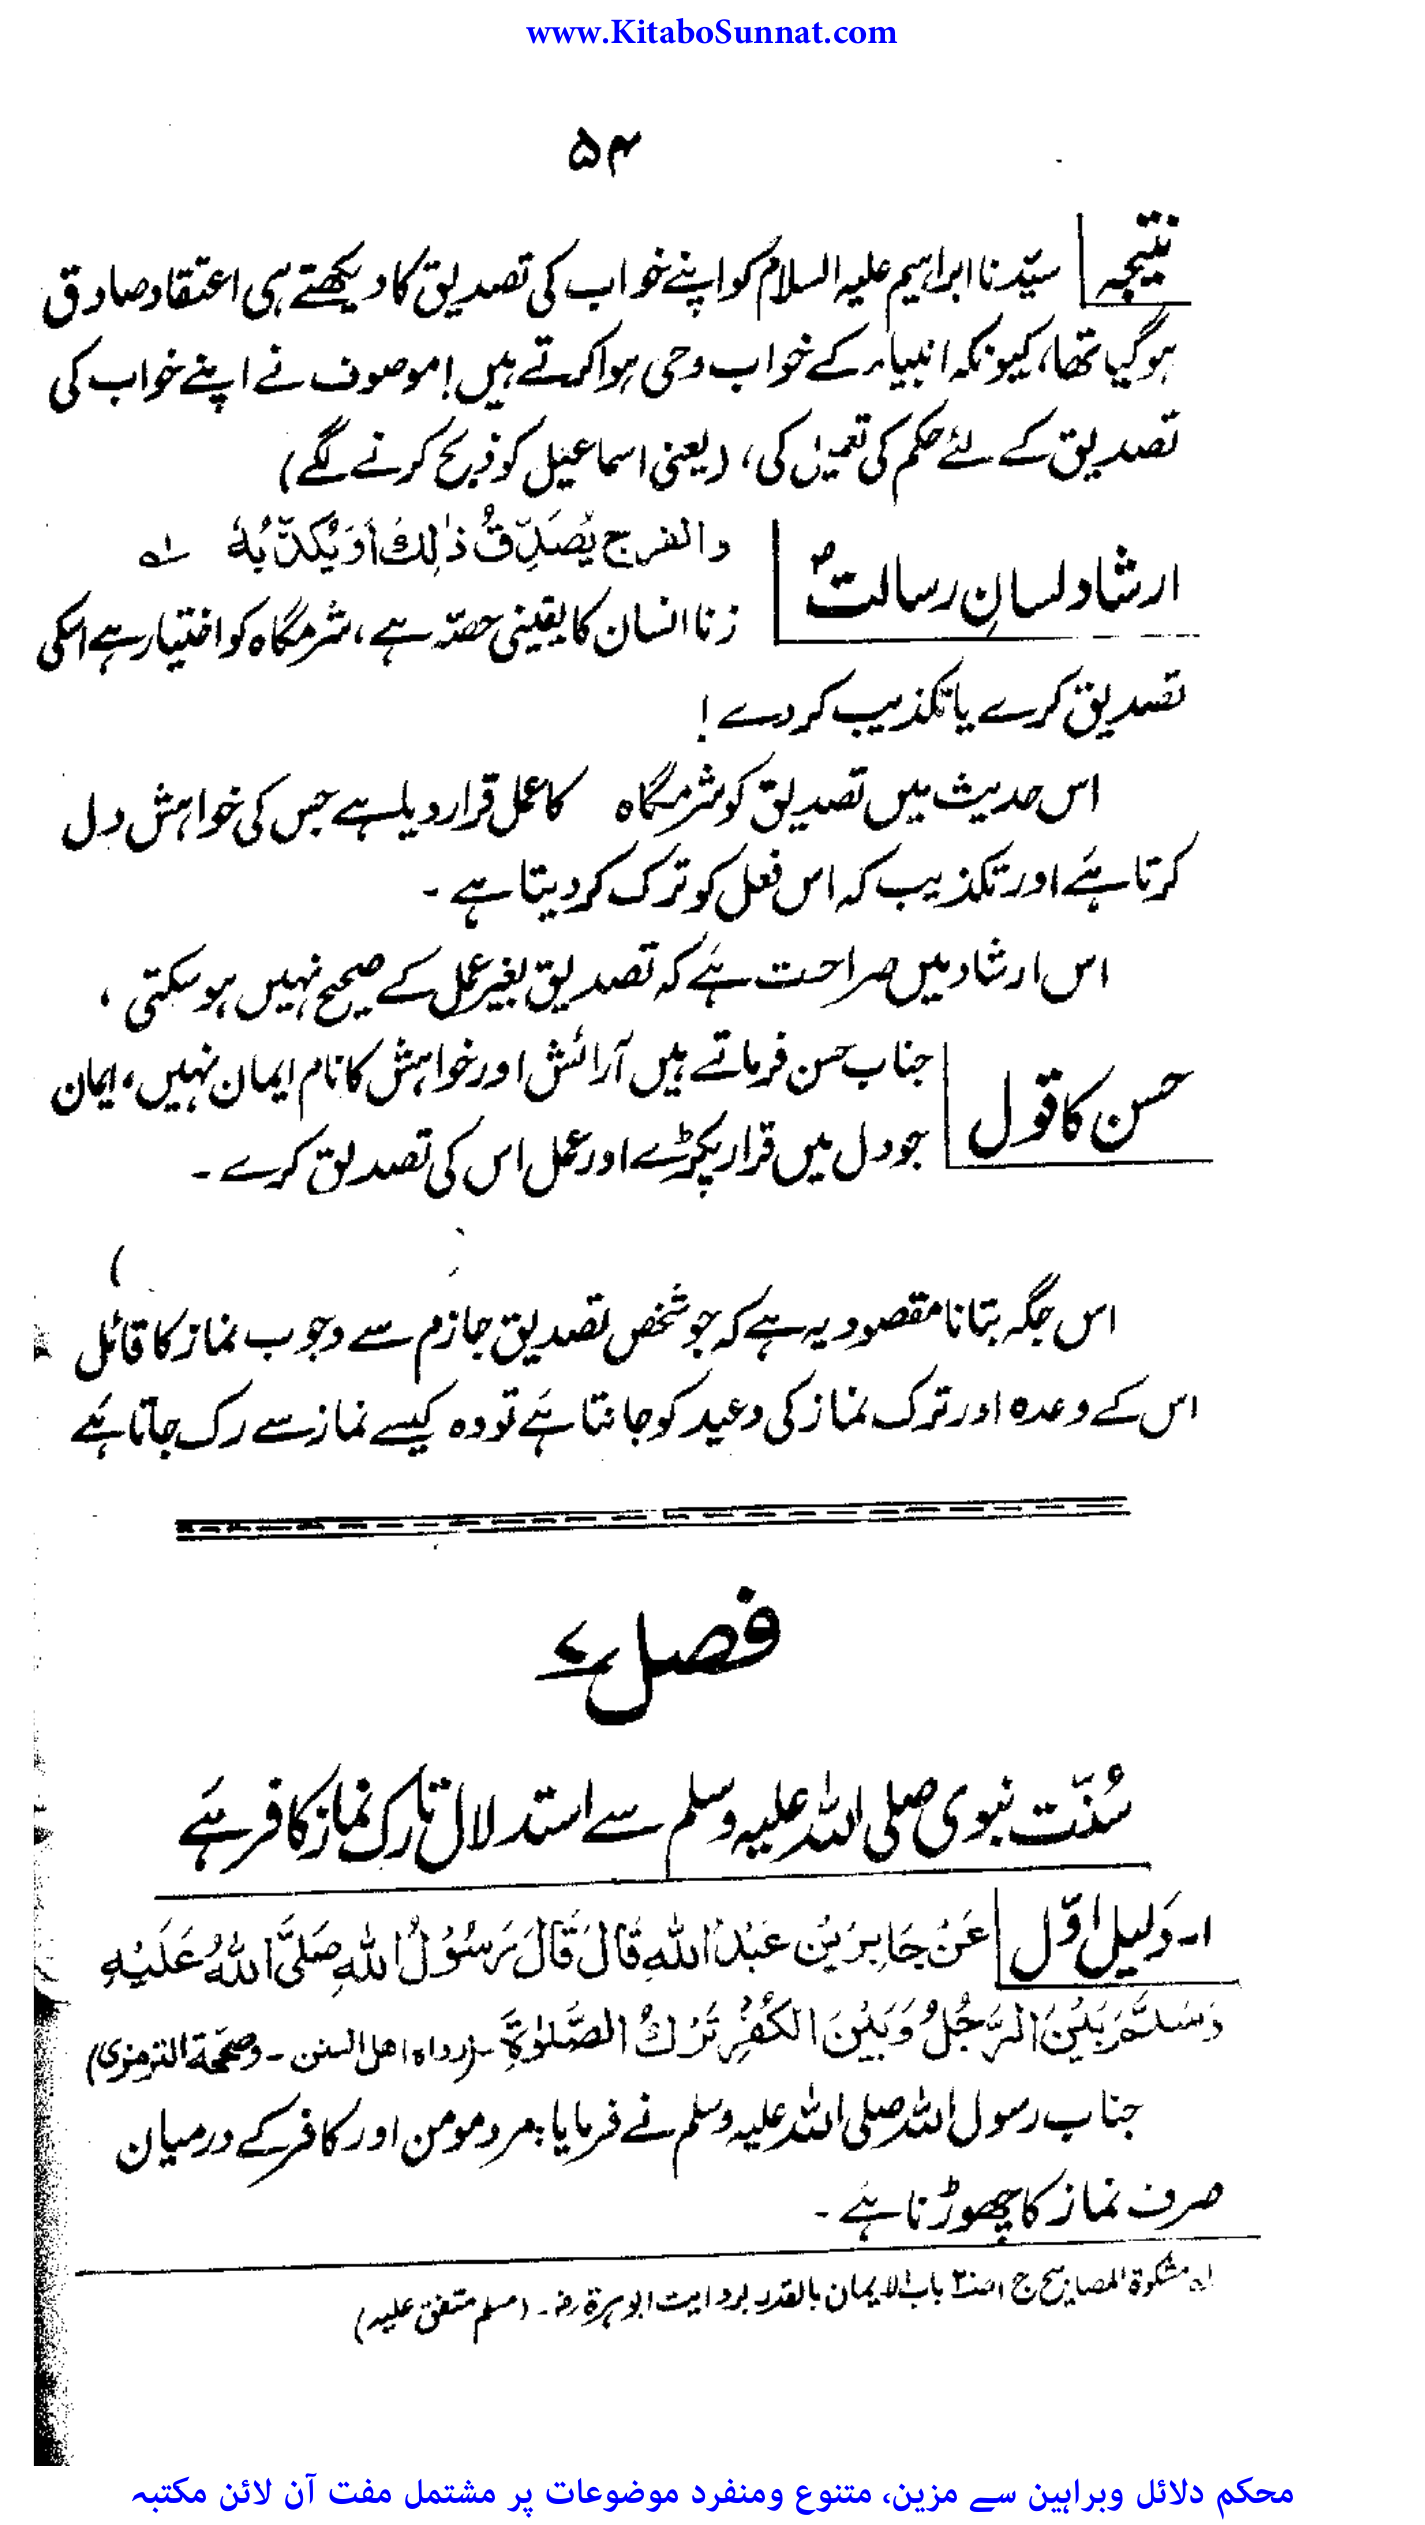 www.KitaboSunnat.com
۵۴
نتیجہ سیّدنا ابراہیم علیہ السلام کو اپنے خواب کی تصدیق کا دیکھتے ہی اعتقاد صادق
ہوگیا تھا، کیونکہ انبیاء کے خواب وحی ہوا کرتے ہیں! موصوف نے اپنے خواب کی
تصدیق کے لئے حکم کی تعمیل کی، (یعنی اسماعیل کو ذبح کرنے لگے)
ارشاد لسانِ رسالتؐ والفرج یُصَدِّقُ ذٰلِكَ اَوَیُكَذِّبُهٗ ؎۱
زنا انسان کا یقینی حصّہ ہے، شرمگاہ کو اختیار ہے اسکی
تصدیق کرے یا تکذیب کر دے!
اس حدیث میں تصدیق کو شرمگاہ کا عمل قرار دیا ہے جس کی خواہش دل
کرتا ہے اور تکذیب کہ اس فعل کو ترک کر دیتا ہے ۔
اس ارشاد میں صراحت ہے کہ تصدیق بغیر عمل کے صحیح نہیں ہو سکتی ،
حسن کا قول جناب حسن فرماتے ہیں آرائش اور خواہش کا نام ایمان نہیں، ایمان
جو دل میں قرار پکڑے اور عمل اس کی تصدیق کرے ۔
اس جگہ بتانا مقصود یہ ہے کہ جو شخص تصدیق جازم سے وجوب نماز کا قائل
اس کے وعدہ اور ترک نماز کی وعید کو جانتا ہے تو وہ کیسے نماز سے رک جاتا ہے
فصل ۷
سُنّت نبوی صلی اللہ علیہ وسلم سے استدلال تارک نماز کافر ہے
۱۔ دَلیل اوّل عَنْ جَابِرِ بْنِ عَبْدُ اللّٰهِ قَالَ قَالَ رَسُوْلُ اللّٰهِ صَلَّى اللّٰهُ عَلَيْهِ
وَسَلَّمَ بَيْنَ الرَّجُلُ وَبَيْنَ الْكُفْرِ تَرْكُ الصَّلٰوةِ ۔ (رواہ اهل السنن ۔ وصحّحهٗ الترمزی)
جناب رسول اللہ صلی اللہ علیہ وسلم نے فرمایا: مرد مومن اور کافر کے درمیان
صرف نماز کا چھوڑنا ہے ۔
؎۱ مشکوٰۃ المصابیح ج ۱ باب الایمان بالقدر بروایت ابوہریرۃ رض ۔ (مسلم متفق علیہ)
محکم دلائل وبراہین سے مزین، متنوع ومنفرد موضوعات پر مشتمل مفت آن لائن مکتبہ